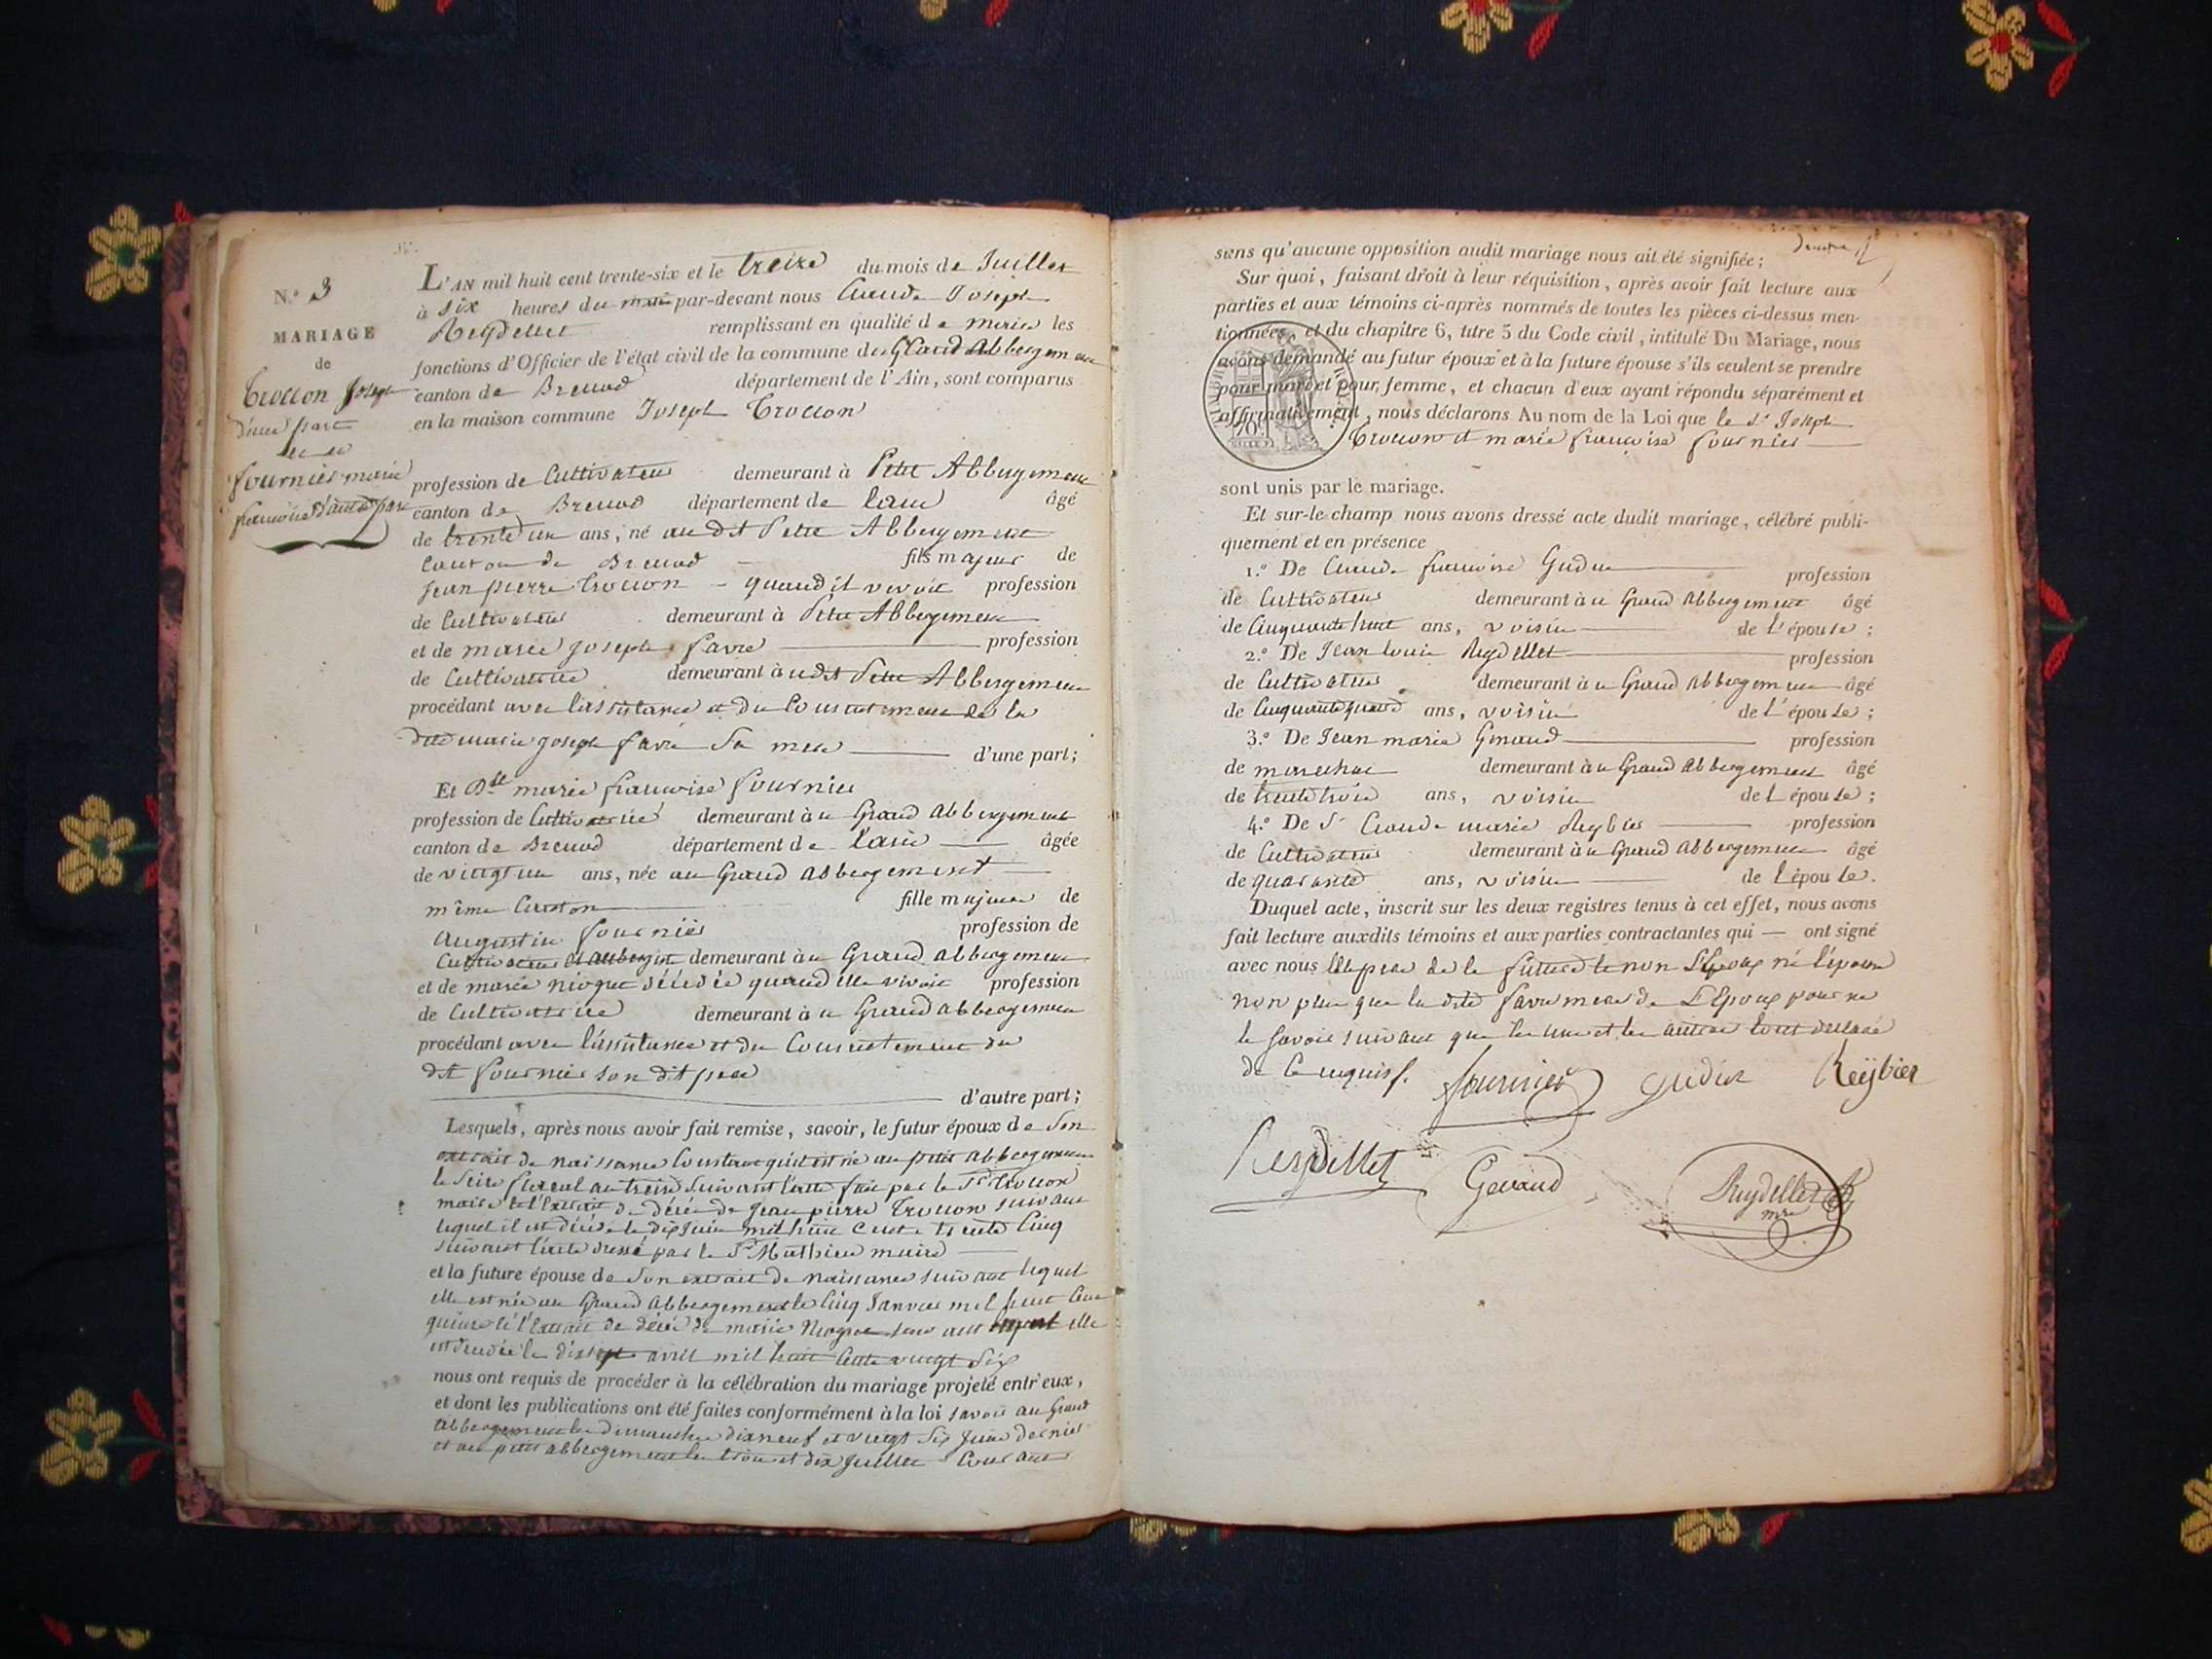 N.º 3
MARIAGE
de
Trocon Joseph
d'une part
et de
fournier marie
francoise d'autre part
L'AN mil huit cent trente-six et le treize du mois de Juillet
à six heures du matin par-devant nous Claude Joseph
Reydellet remplissant en qualité de maire les
fonctions d'Officier de l'état civil de la commune du Grand Abbergement
canton de Brenod département de l'Ain, sont comparus
en la maison commune Joseph Trocon
profession de Cultivateur demeurant à Petit Abbergement
canton de Brenod département de lain âgé
de trente un ans, né au dit Petit Abbergement
Canton de Brenod fils majeur de
Jean pierre Trocon quand il vivoit profession
de Cultivateur demeurant à Petit Abbergement
et de marie Joseph favre profession
de Cultivatrice demeurant à udit Petit Abbergement
procédant avec l'assistance et du Consentement de la
dite marie Joseph favre Sa mere d'une part;
Et Dlle marie francoise fournier
profession de Cultivatrice demeurant à u Grand Abbergement
canton de Brenod département de lain âgée
de vingt un ans, née au Grand abbergement
même Canton fille majeure de
augustin fournier profession de
Cultivateur et aubergiste demeurant à u Grand abbergement
et de marie niogret décédée quand elle vivoit profession
de Cultivatrice demeurant à u Grand abbergement
procédant avec l'assistance et du Consentement du
dit fournier son dit pere
d'autre part;
Lesquels, après nous avoir fait remise, savoir, le futur époux de Son
extrait de naissance Constant qu'il est né au petit abbergement
le Seize floreal an treize Suivant l'acte fait par le Sr Trocon
maire et l'Extrait de décés de Jean pierre Trocon suivant
lequel il est décédé le dix Juin mil huit Cent trente Cinq
suivant l'acte dressé par le Sr Mathieu maire
et la future épouse de Son extrait de naissance suivant lequel
elle est née au Grand Abbergement le Cinq Janvier mil huit Cent
quinze et l'Extrait de décés de marie Niogret suivant lequel elle
est décédée le dix sept avril mil huit Cent vingt Six
nous ont requis de procéder à la célébration du mariage projeté entr'eux,
et dont les publications ont été faites conformément à la loi savoir au Grand
Abbergement les dimanches dix neuf et vingt Six Juin dernier
et au petit abbergement les trois et dix Juillet Courant
sans qu'aucune opposition audit mariage nous ait été signifiée;
Sur quoi, faisant droit à leur réquisition, après avoir fait lecture aux
parties et aux témoins ci-après nommés de toutes les pièces ci-dessus men-
tionnées, et du chapitre 6, titre 5 du Code civil, intitulé Du Mariage, nous
avons demandé au futur époux et à la future épouse s'ils veulent se prendre
pour mari et pour femme, et chacun d'eux ayant répondu séparément et
affirmativement, nous déclarons Au nom de la Loi que le Sr Joseph
Trocon et marie francoise fournier
sont unis par le mariage.
Et sur-le champ nous avons dressé acte dudit mariage, célébré publi-
quement et en présence
1.º De Claude francoise Gudin profession
de Cultivateur demeurant à u Grand Abbergement âgé
de Cinquante huit ans, voisin de l'épouse;
2.º De Jean louis Reydellet profession
de Cultivateur demeurant à u Grand Abbergement âgé
de Cinquante quatre ans, voisin de l'épouse;
3.º De Jean marie Genaud profession
de marechal demeurant à u Grand Abbergement âgé
de trente trois ans, voisin de l'épouse;
4.º De Sr Claude marie Reybier profession
de Cultivateur demeurant à u Grand Abbergement âgé
de quarante ans, voisin de l'épouse.
Duquel acte, inscrit sur les deux registres tenus à cet effet, nous avons
fait lecture auxdits témoins et aux parties contractantes qui — ont signé
avec nous le pere de la future et non l'Epoux ni l'épouse
non plus que la dite favre mere de L'Epoux pour ne
le savoir suivant que les uns et les autres l'ont déclaré
de Ce enquis.
fournier Gudin Reÿbier
Reydellet Genaud Reydellet
mre